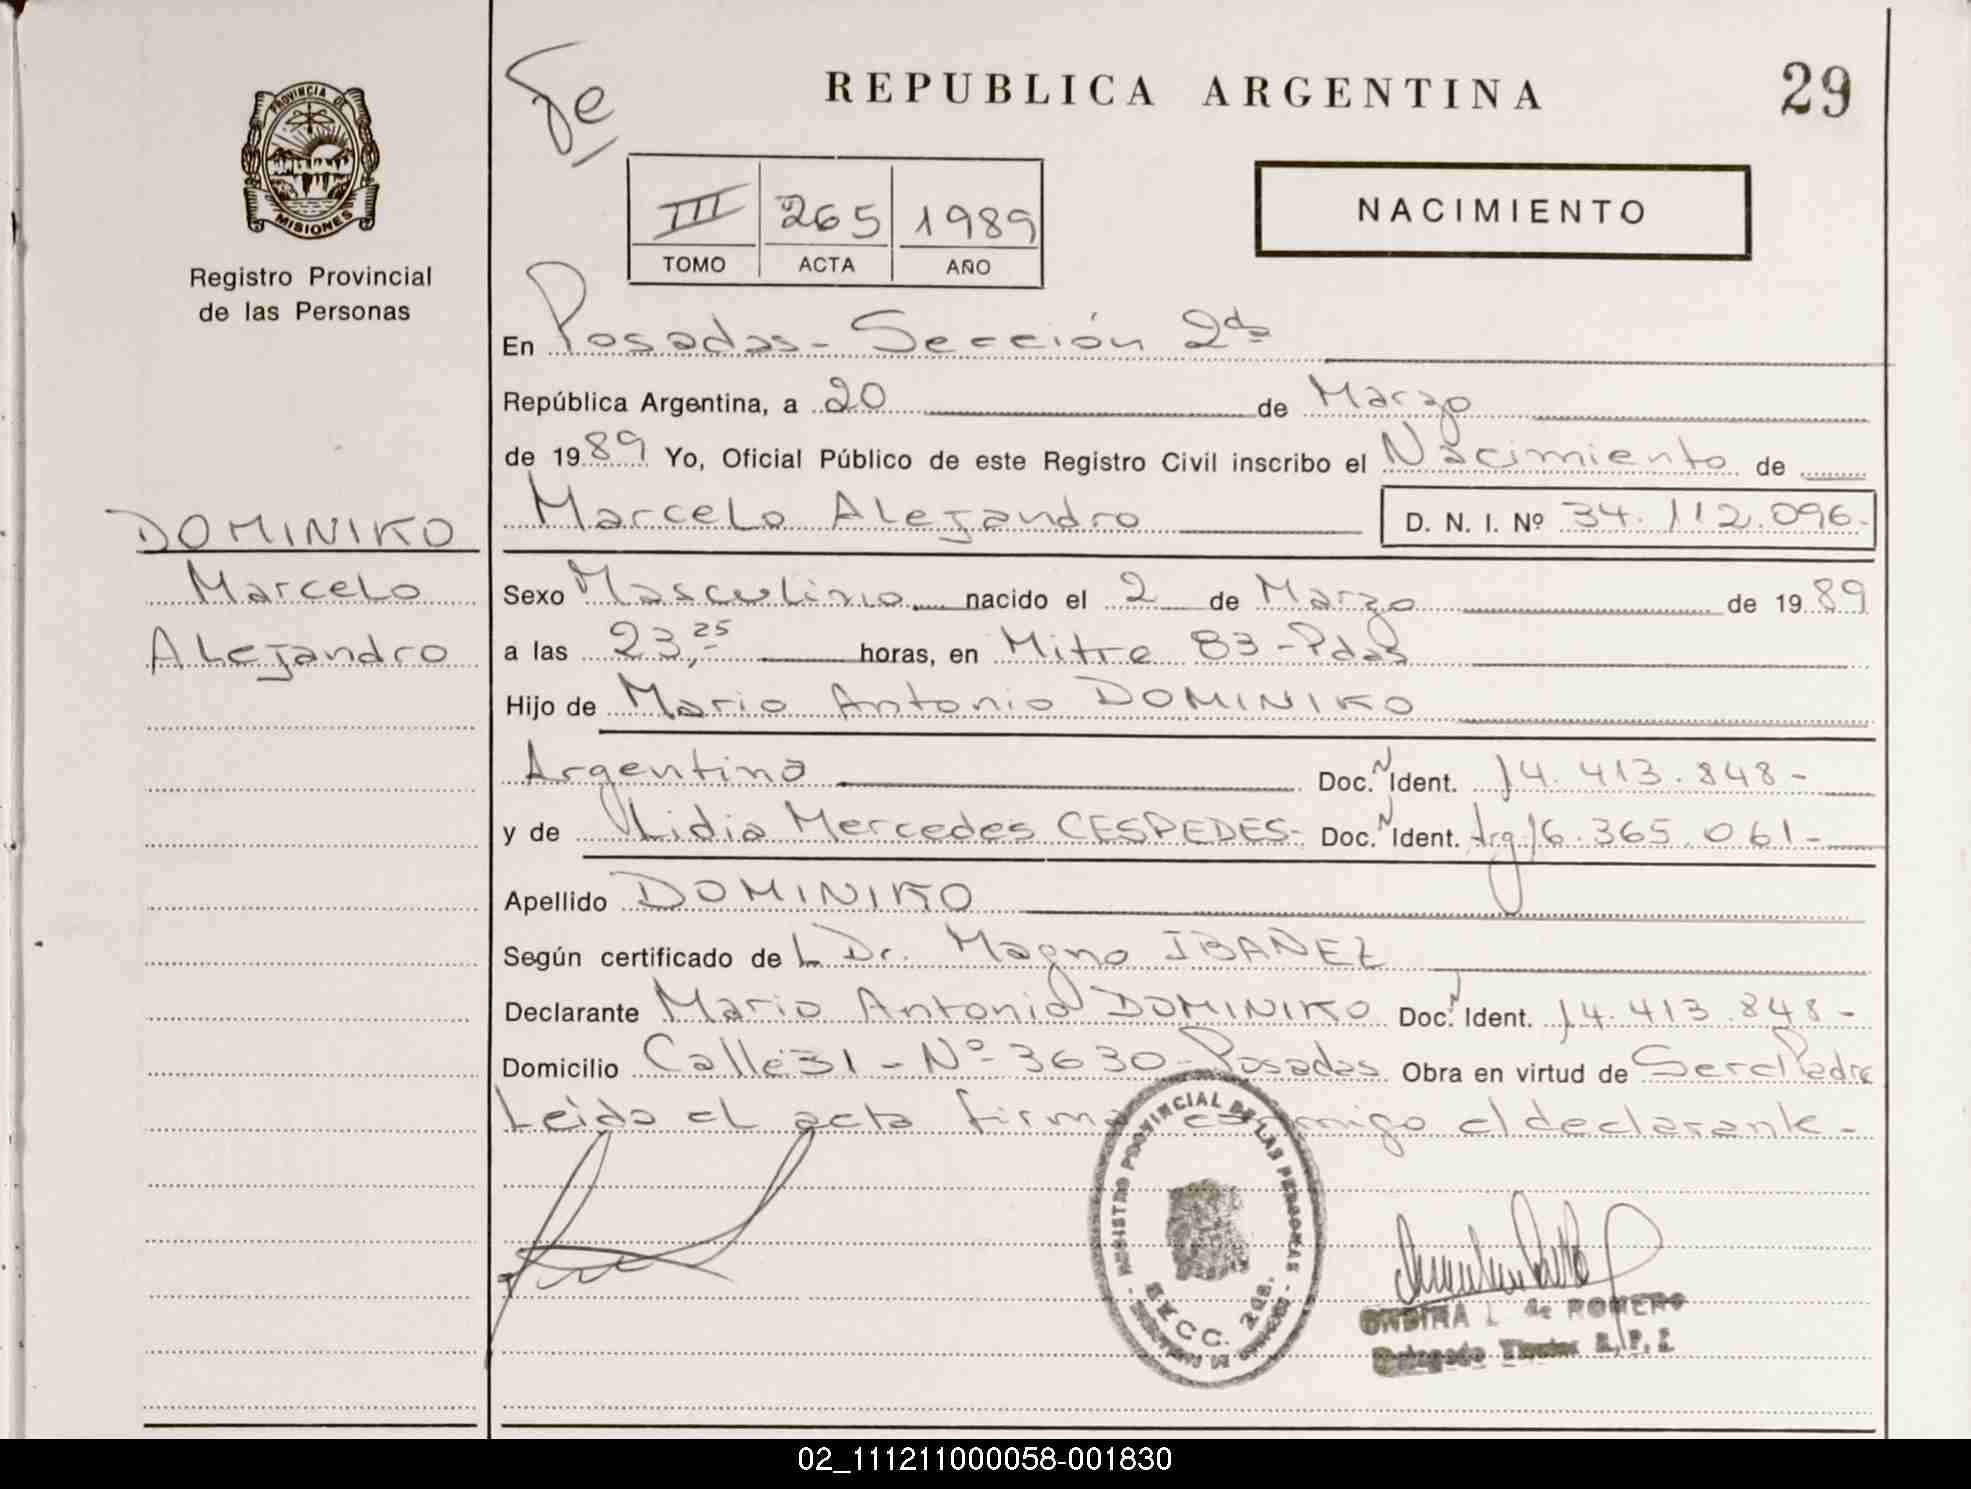 PROVINCIA DE
MISIONES
Registro Provincial
de las Personas
DOMINIKO
Marcelo
Alejandro
REPUBLICA ARGENTINA
29
III 265 1989
TOMO ACTA AÑO
NACIMIENTO
En Posadas - Sección 2da
República Argentina, a 20 de Marzo
de 1989 Yo, Oficial Público de este Registro Civil inscribo el Nacimiento de
Marcelo Alejandro D. N. I. Nº 34.112.096.-
Sexo Masculino nacido el 2 de Marzo de 1989
a las 23,25 horas, en Mitre 83 - Pdas
Hijo de Mario Antonio DOMINIKO
Argentino Doc. N Ident. 14.413.848-
y de Lidia Mercedes CESPEDES- Doc. N Ident. Arg 16.365.061-
Apellido DOMINIKO
Según certificado de L Dr. Magno IBAÑEZ
Declarante Mario Antonio DOMINIKO Doc. N Ident. 14.413.848-
Domicilio Calle 31 - Nº 3630 - Posadas Obra en virtud de Ser el Padre
Leída el acta firma conmigo el declarante-
REGISTRO PROVINCIAL DE LAS PERSONAS
SECC. 2da.
ONDINA L. de ROMERO
Delegado Titular R. P. P.
02_111211000058-001830